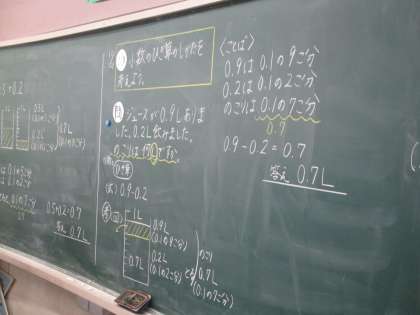 5+0.2
0.5L
0.2L
0.7L
0.5+0.2=0.7
答え 0.7L
小数のひき算のしかたを
考えよう。
問 ジュースが0.9Lありま
した。0.2L飲みました。
のこりは何Lですか。
ひき算
(式) 0.9-0.2
1L
0.9L
(0.1の9こ分)
0.2L
(0.1の2こ分)
0.7L
のこり
0.7L
(0.1の7こ分)
〈ことば〉
0.9は 0.1の9こ分
0.2は 0.1の2こ分
のこりは 0.1の7こ分
0.7
0.9-0.2=0.7
答え 0.7L